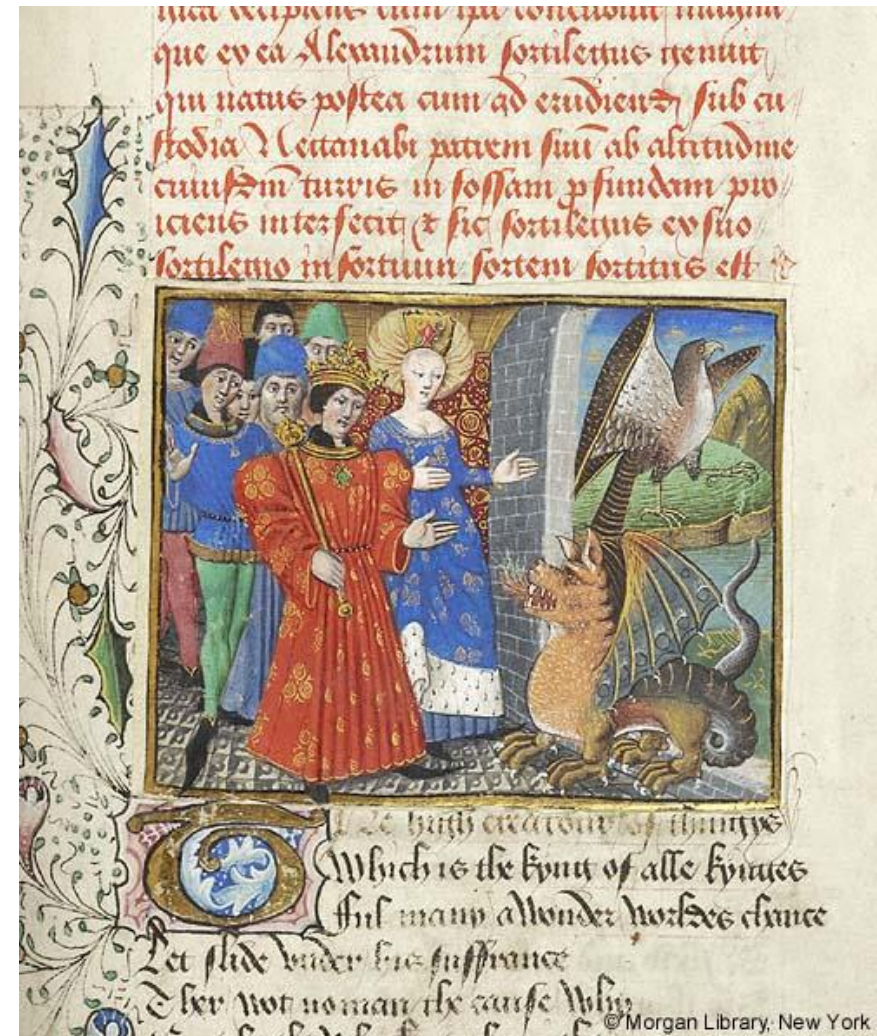 que ex ea Alexandrum sortilegus genuit
qui natus postea cum ad erudiend sub cu
stodia Nectanabi patrem suū ab altitudine
cuiusdm turris in fossam p fundam pro
iciens interfecit & sic sortilegus ex suo
sortilegio infortunii sortem sortitus est
The high creatour of thinges
Which is the kyng of alle kynges
Ful many a wonder worldes chance
Let slide vnder his suffrance
Ther wot no man the cause why
© Morgan Library, New York